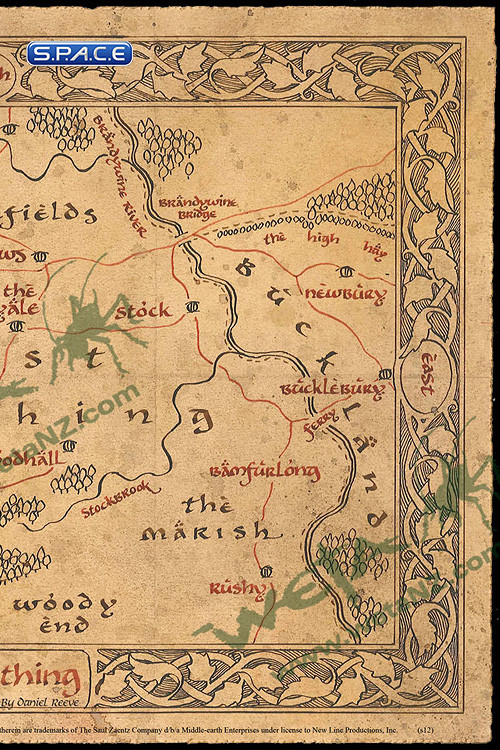 S.P.A.C.E
h
BRANDYWINE RIVER
BRANDYWINE
BRIDGE
fields
the high hay
ws
the
yale
Stock
Newbury
Buckland
st
Bucklebury
East
hing
Ferry
odhall
Bamfurlong
Stockbrook
the
MARISH
Rushy
woody
End
thing
By Daniel Reeve
www.WetaNZ.com
therein are trademarks of The Saul Zaentz Company d/b/a Middle-earth Enterprises under license to New Line Productions, Inc. (s12)